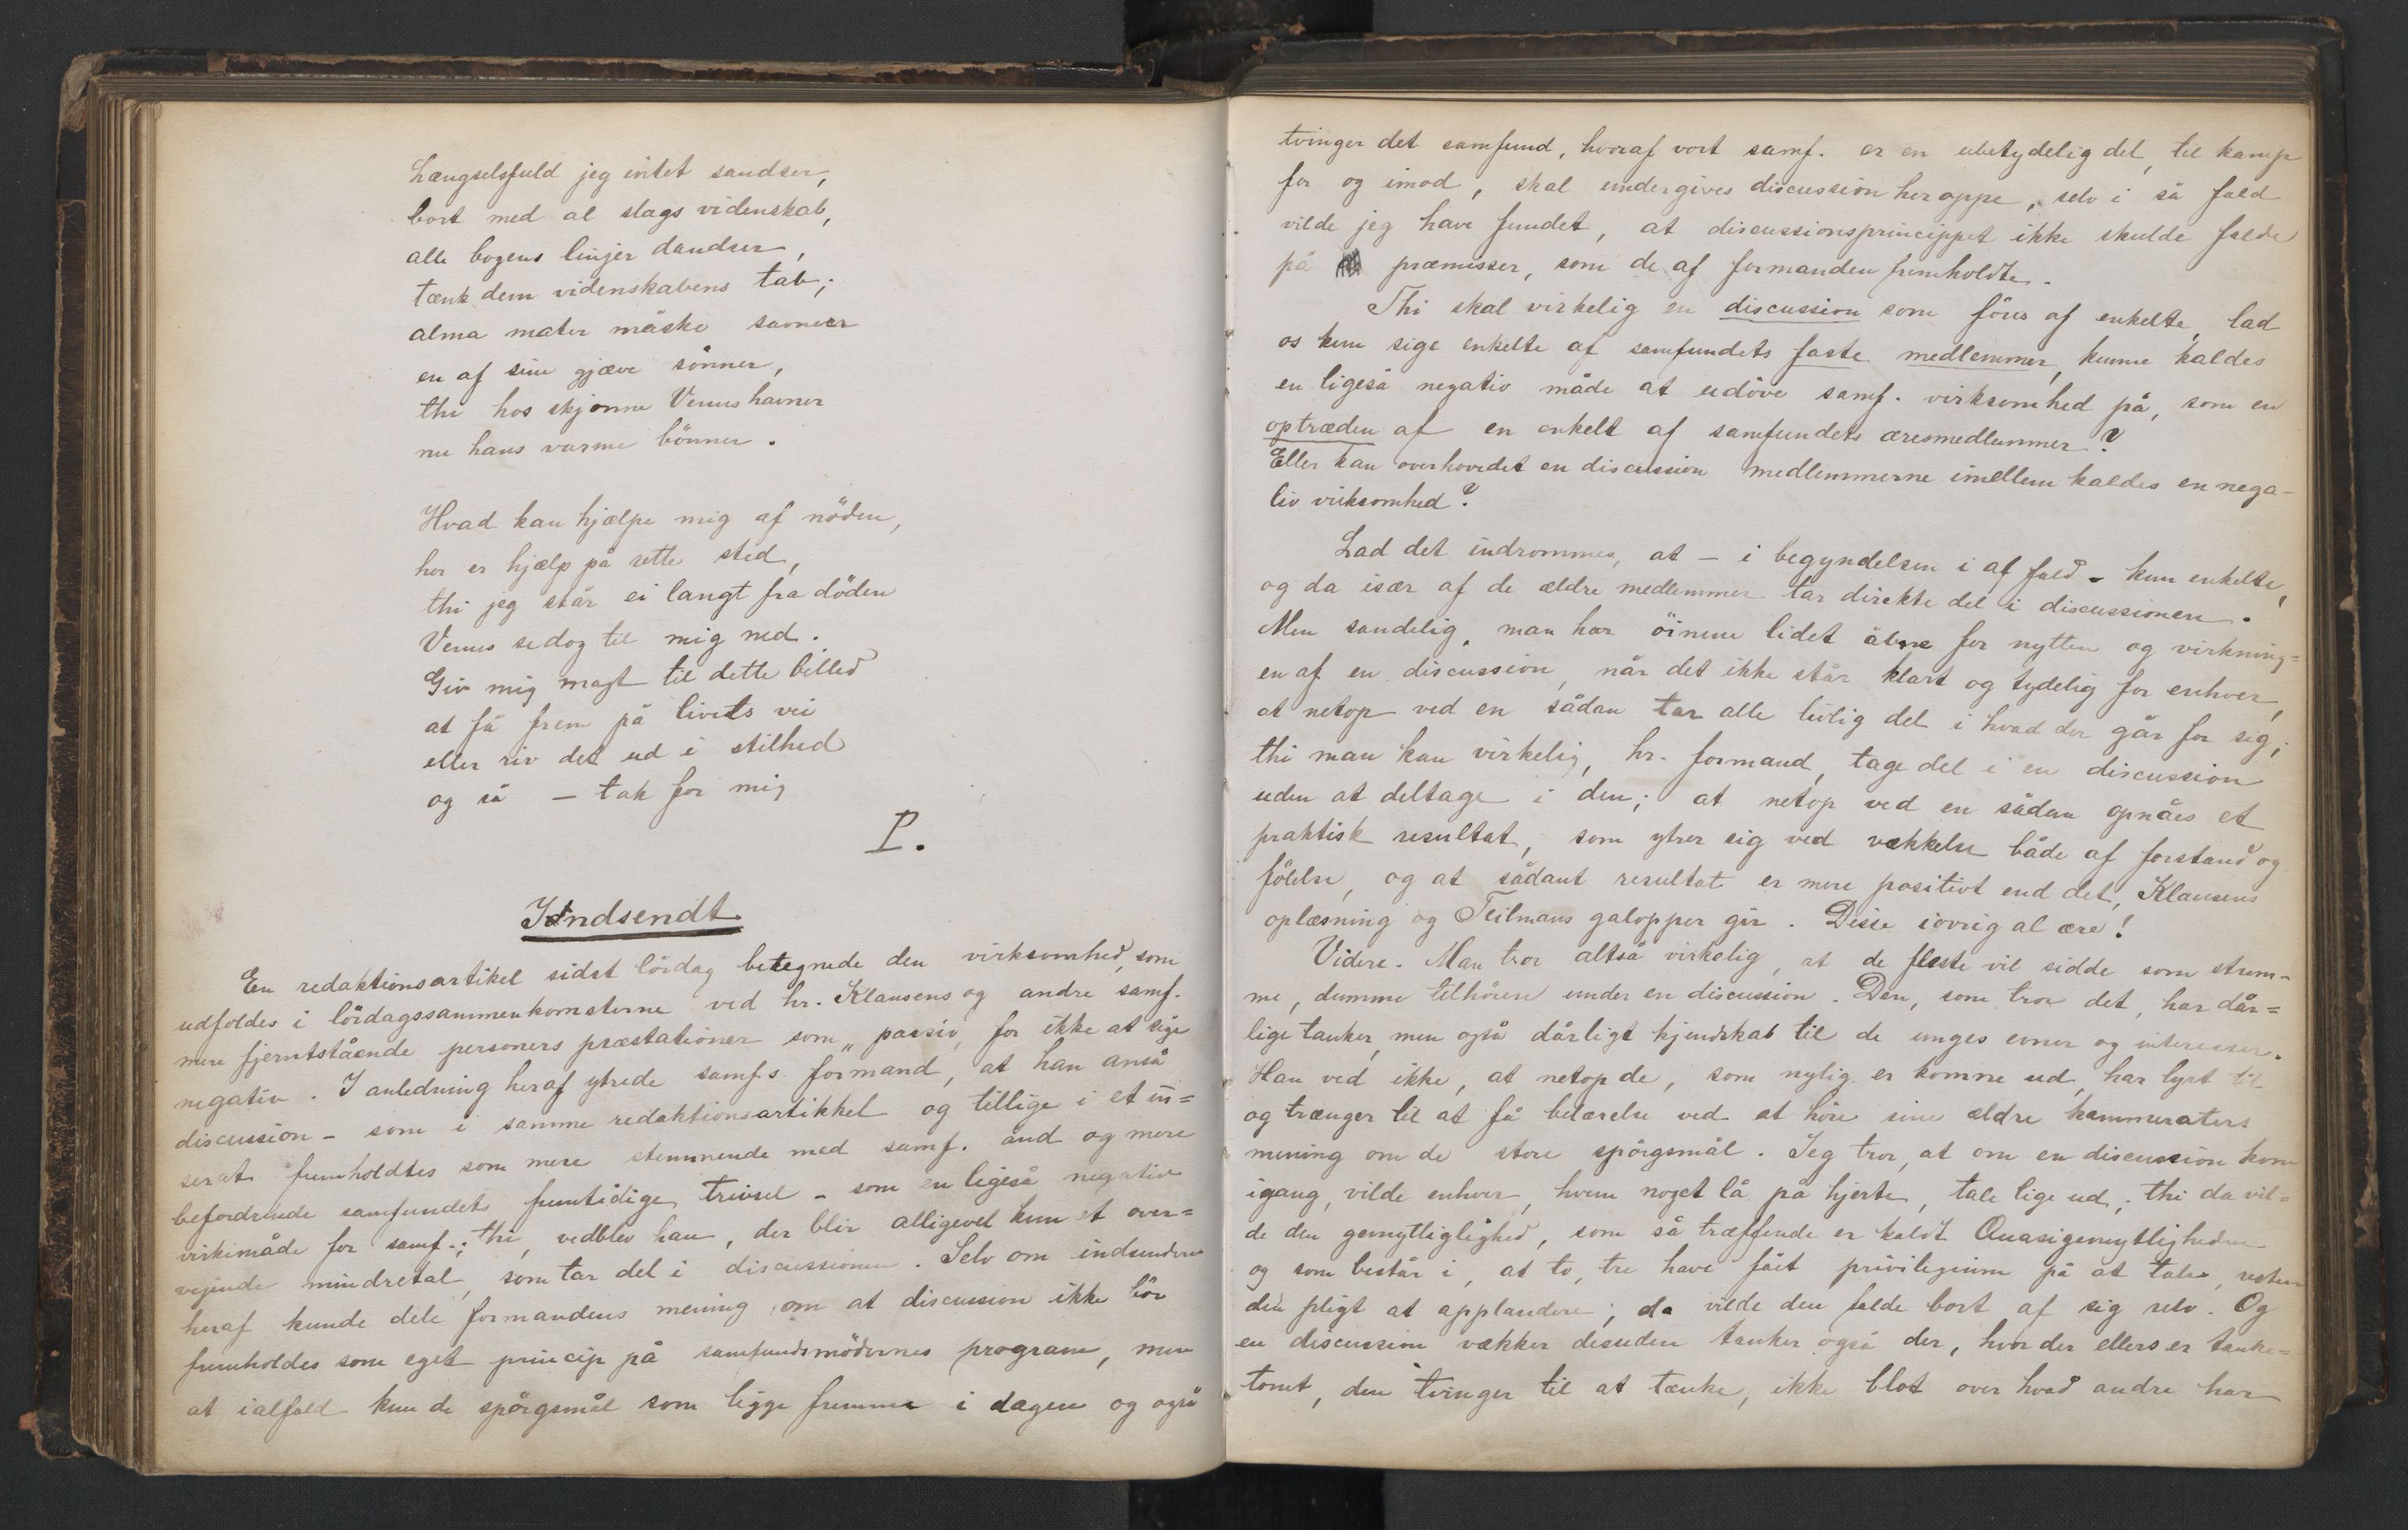 Længselsfuld jeg intet sandser,
bort med al slags videnskab,
alle bogens linjer dandser,
tænk dem videnskabens tab;
alma mater måske savner
en af sine gjæve sönner,
thi hos skjønne Venus havner
nu hans varme bönner.
Hvad kan hjælpe mig af nöden,
her er hjælp på rette sted,
thi jeg står ei langt fra döden
Venus se dog til mig ned.
Giv mig magt til dette billed
at få frem på livets vei
eller riv det ud i stilhed
og så – tak for mig
P.
Indsendt
En redaktionsartikel sidst lördag betegnede den virksomhed, som
udfoldes i lördagssammenkomsterne ved hr. Klausens og andre samf.
mere fjerntstående personers præstationer som „passiv, for ikke at sige
negativ. I anledning heraf ytrede samf.s formand, at han anså
discussion – som i samme redaktionsartikkel og tillige i et in=
serat fremholdtes som mere stemmende med samf. ånd og mere
befordrende samfundets fremtidige trivsel – som en ligeså negativ
virkemåde for samf.; thi, vedblev han, der blir alligevel kun et over=
vejende mindretal, som tar del i discussionen. Selv om indsenderen
heraf kunde dele formandens mening om at discussion ikke bör
fremholdes som eget princip på samfundsmödernes program, men
at ialfald kun de spörgsmål som ligge fremme i dagen og også
tvinger det samfund, hvoraf vort samf. er en ubetydelig del, til kamp
for og imod, skal undergives discussion her oppe, selv i så fald
vilde jeg have fundet, at discussionsprincippet ikke skulde falde
på præmisser, som de af formanden fremholdte.
Thi skal virkelig en discussion som föres af enkelte, lad
os kun sige enkelte af samfundets faste medlemmer, kunne kaldes
en ligeså negativ måde at udöve samf. virksomhed på, som en
optræden af en enkelt af samfundets æresmedlemmer?
Eller kan overhovedet en discussion medlemmerne imellem kaldes en nega-
tiv virksomhed?
Lad det indrømmes, at – i begyndelsen i al fald – kun enkelte,
og da især af de ældre medlemmer tar direkte del i discussionen.
Men sandelig, man har öinene lidet åbne for nytten og virkning=
en af en discussion, når det ikke står klart og tydelig for enhver,
at netop ved en sådan tar alle livlig del i hvad der går for sig;
thi man kan virkelig, hr. formand, tage del i en discussion
uden at deltage i den; at netop ved en sådan opnåes et
praktisk resultat, som ytrer sig ved vækkelse både af forstand og
fölelse, og at sådant resultat er mere positivt end det, Klausens
oplæsning og Teilmans galopper gir. Disse iövrig al ære!
Videre. Man tror altså virkelig, at de fleste vil sidde som stum-
me, dumme tilhörere under en discussion. Den, som tror det, har dår=
lige tanker, men også dårligt kjendskab til de unges evner og interesser.
Han ved ikke, at netop de, som nylig er komne ud, har lyst til
og trænger til at få belærelse ved at höre sine ældre kammeraters
mening om de store spörgsmål. Jeg tror, at om en discussion kom
igang, vilde enhver, hvem noget lå på hjerte, tale lige ud; thi da vil=
de den gemytliglighed, som så træffende er kaldt Quasigemytligheden
og som består i, at to, tre have fåit privilegium på at tale, resten
den pligt at applaudere; da vilde den falde bort af sig selv. Og
en discussion vækker desuden tanker også der, hvor der ellers er tanke=
tomt, den tvinger til at tænke, ikke blot over hvad andre har